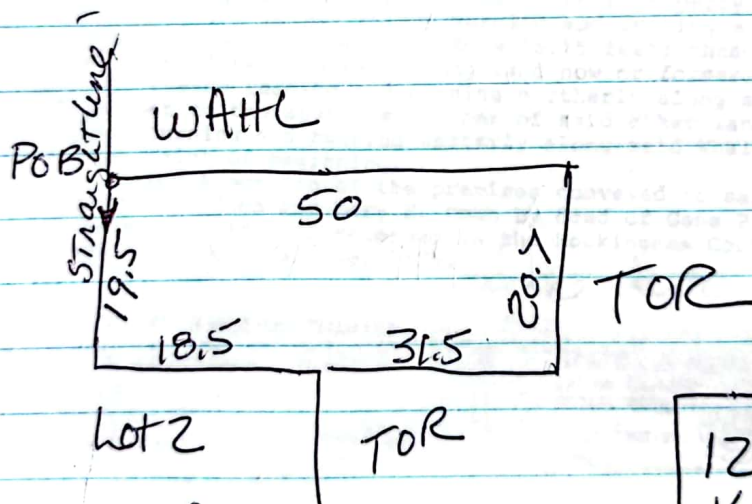 Straight line
WAHL
POB
50
19.5
20.1
TOR
18.5
31.5
Lot 2
TOR
12